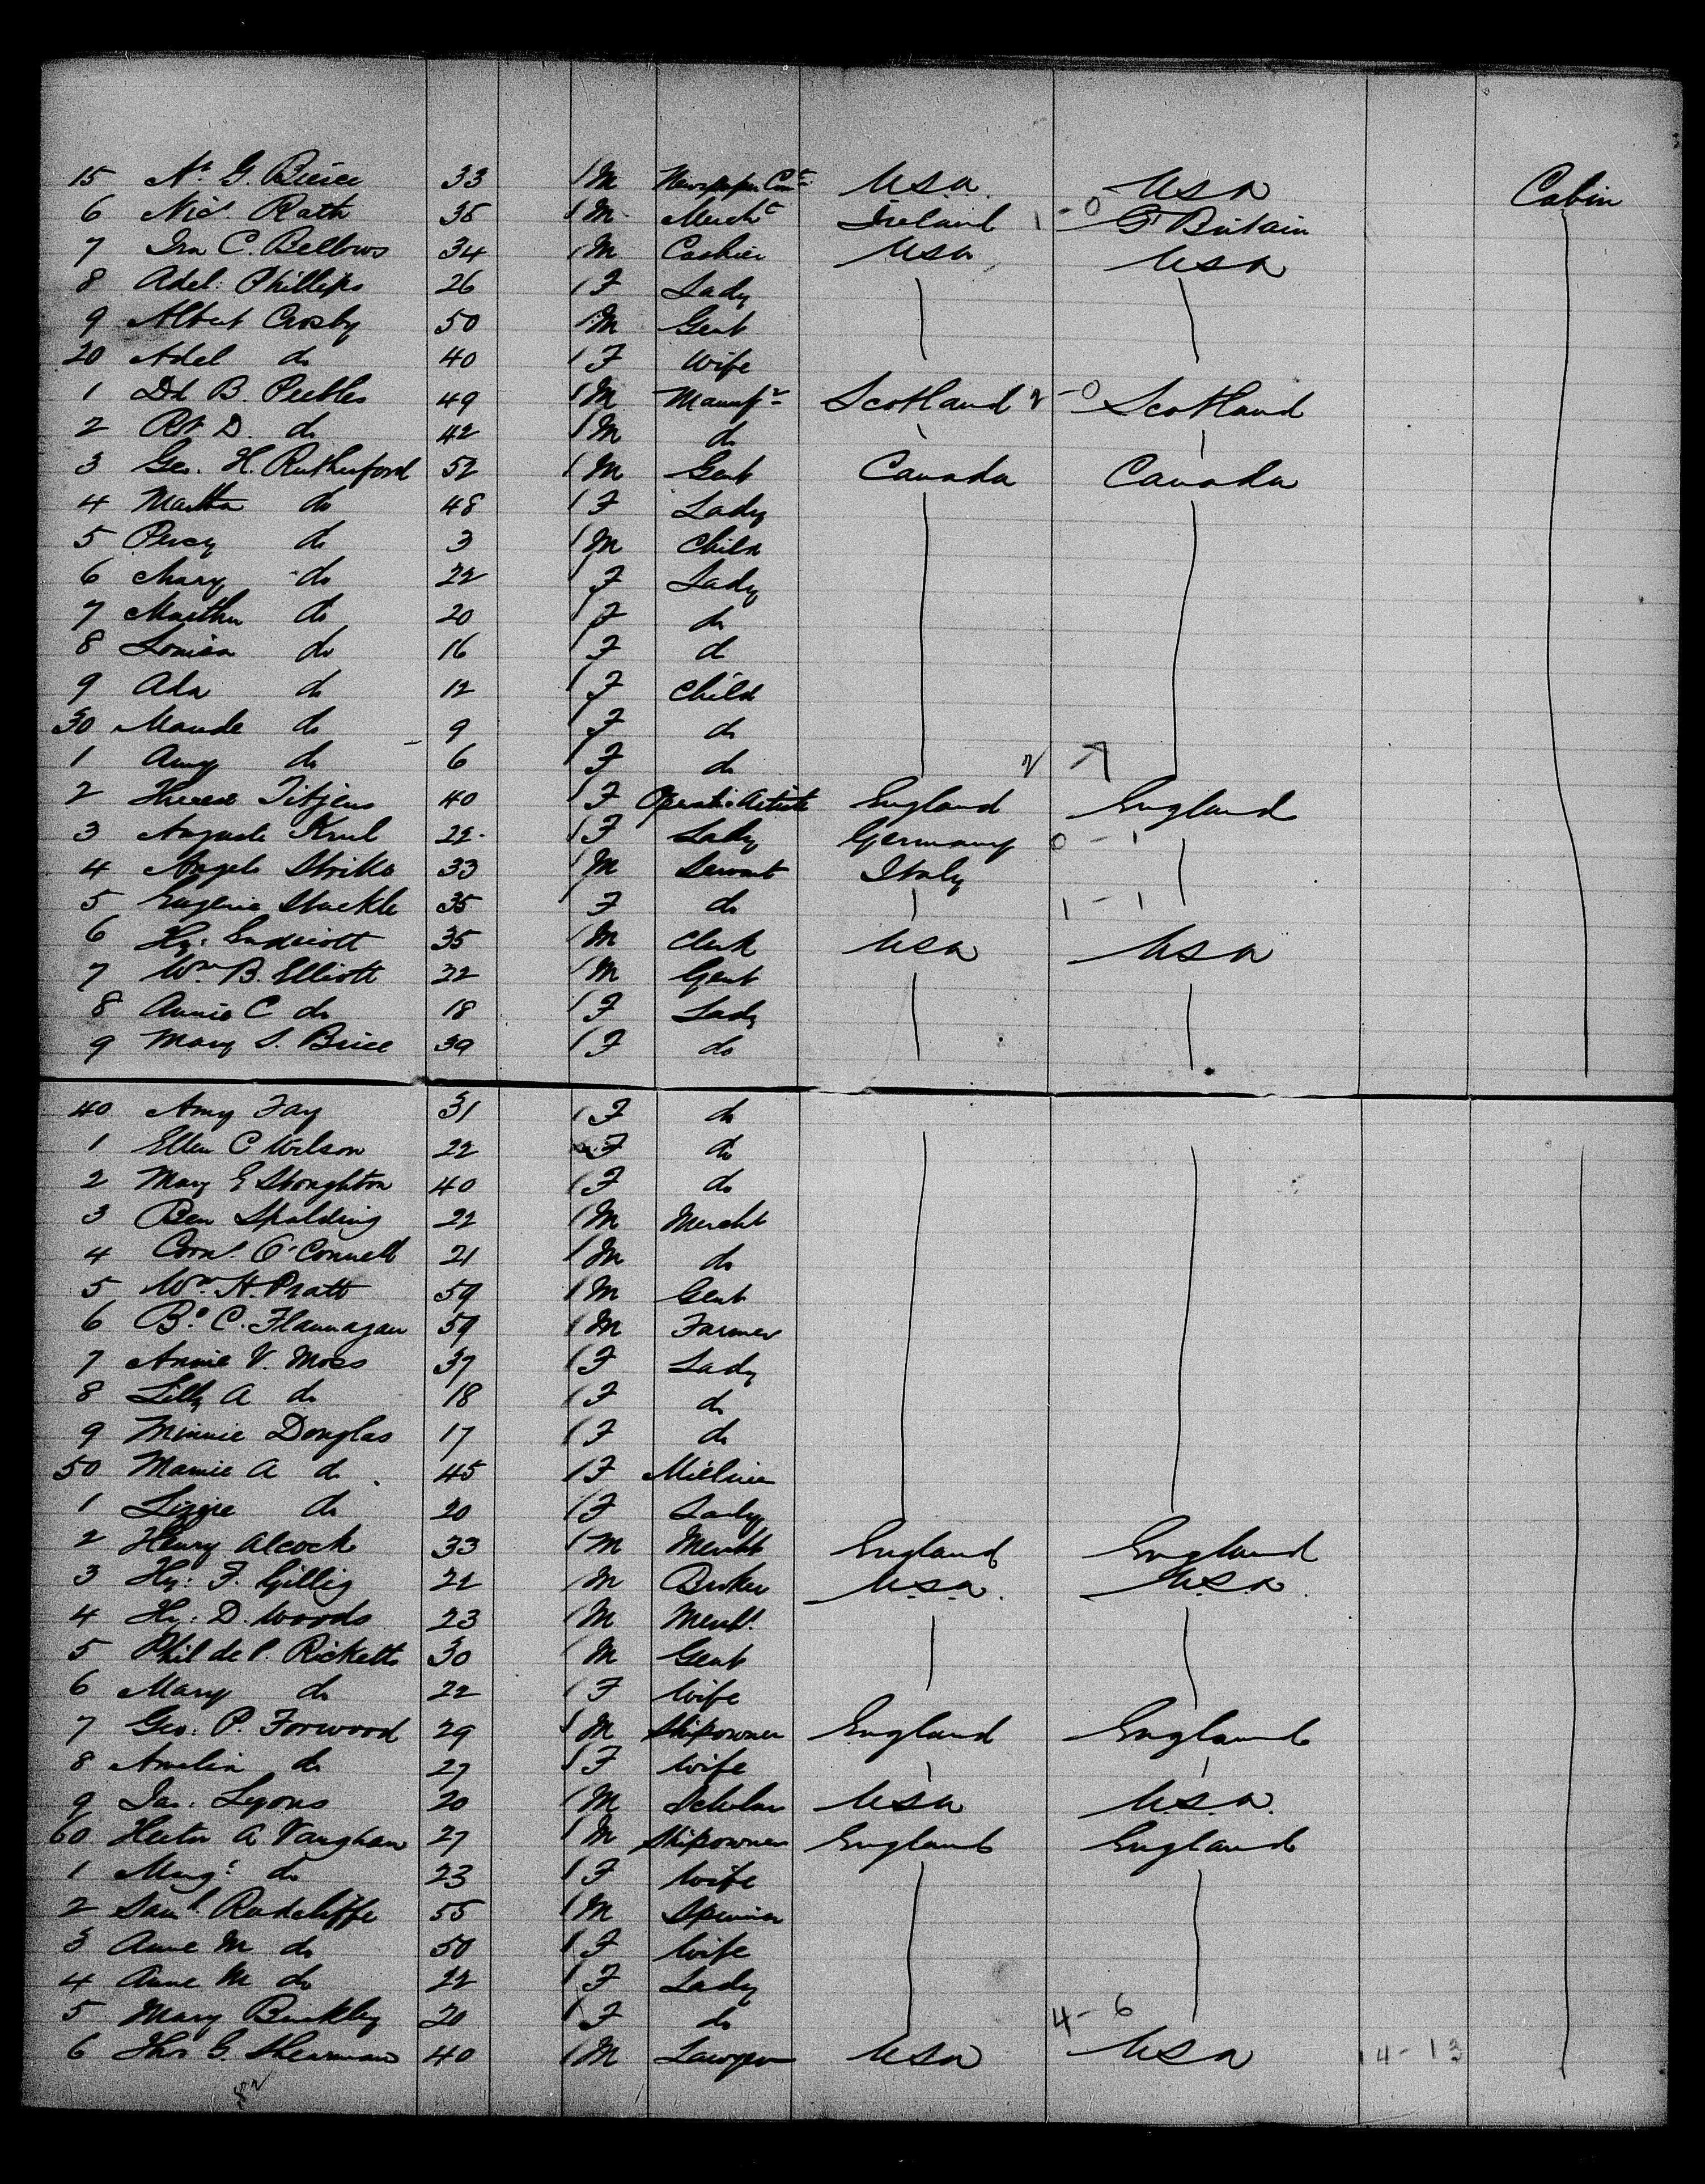 15 Ar G. Bierce 33 1 M Newspaper Cont. U.S.A. USA Cabin
6 Nics. Rath 35 1 M Mercht Ireland 1 - 0 Gt Britain
7 Ira C. Bellows 34 1 M Cashier USA USA
8 Adel: Phillips 26 1 F Lady
9 Albert Crosby 50 1 M Gent
20 Adel do 40 1 F Wife
1 Dd B. Peebles 49 1 M Manufr Scotland 2 - 0 Scotland
2 Rt D. do 42 1 M do
3 Geo. H. Rutherford 52 1 M Gent Canada Canada
4 Martha do 48 1 F Lady
5 Percy do 3 1 M Child
6 Mary do 22 1 F Lady
7 Martha do 20 1 F do
8 Louisa do 16 1 F do
9 Ada do 12 1 F Child
30 Maude do 9 1 F do
1 Amy do 6 1 F do 2 - 7
2 Therese Titjens 40 1 F Operatic Artiste England England
3 Auguste Krul 22 1 F Lady Germany 0 - 1
4 Angelo Strika 33 1 M Servant Italy
5 Eugenie Stuckle 35 F do 1 - 1
6 Hy: Endicott 35 1 M Clerk USA USA
7 Wm B. Elliott 32 1 M Gent
8 Annie C do 18 1 F Lady
9 Mary S. Brice 39 1 F do
40 Amy Fay 31 1 F do
1 Ellen C Wilson 22 F do
2 Mary E Stoughton 40 1 F do
3 Ben Spalding 22 1 M Mercht
4 Corns. O'Connell 21 1 M do
5 Wm. H. Pratt 59 1 M Gent
6 Bo. C. Flannagan 59 1 M Farmer
7 Annie V. Moss 37 1 F Lady
8 Lilly A do 18 1 F do
9 Minnie Douglas 17 1 F do
50 Mamie A do 45 1 F Milliner
1 Lizzie do 20 1 F Lady
2 Henry Alcock 33 1 M Mercht England England
3 Hy: F. Gillig 22 1 M Broker U.S.A. U.S.A.
4 Hy: D. Woods 23 1 M Mercht.
5 Phil de P. Ricketts 30 1 M Gent
6 Mary do 22 1 F Wife
7 Geo. P. Forwood 29 1 M Shipowner England England
8 Amelia do 27 1 F Wife
9 Jas: Lyons 20 1 M Scholar USA U.S.A.
60 Hector A Vaughan 27 1 M Shipowner England England
1 Margt do 23 1 F Wife
2 Saml. Radcliffe 55 1 M Spinner
3 Anne M do 50 1 F Wife
4 Anne M do 22 1 F Lady
5 Mary Binkley 20 1 F do 4 - 6
6 Thos G. Shearman 40 1 M Lawyer USA USA 14 - 13
52